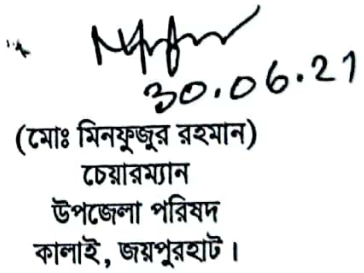 30.06.21
(মোঃ মিনফুজুর রহমান)
চেয়ারম্যান
উপজেলা পরিষদ
কালাই, জয়পুরহাট।